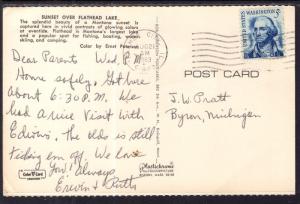 SUNSET OVER FLATHEAD LAKE.
The splendid beauty of a Montana sunset is
captured here in vivid portraits of glowing colors
at eventide. Flathead is Montana's largest lake
and a popular spot for fishing, boating, water
skiing, and camping.
Color by Ernst Peterson
Dear Parents Wed. P.M.
Home safely. Got here
about 6:30 P.M. We
had a nice Visit with
Edwins. The olds is still
ticking em off. We love
You. Always
Erwin & Ruth
PM
POST CARD
UNITED STATES
WASHINGTON
5¢
J. W. Pratt
Byron, Michigan
Plastichrome
Color Card